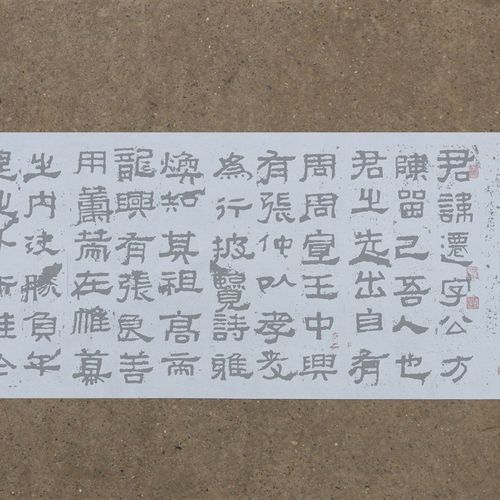 君諱遷字公方
陳留己吾人也
君之先出自有
周周宣王中興
有張仲以孝友
為行披覽詩雅
煥知其祖高帝
龍興有張良善
用籌策在帷幕
之內決勝負千
里之